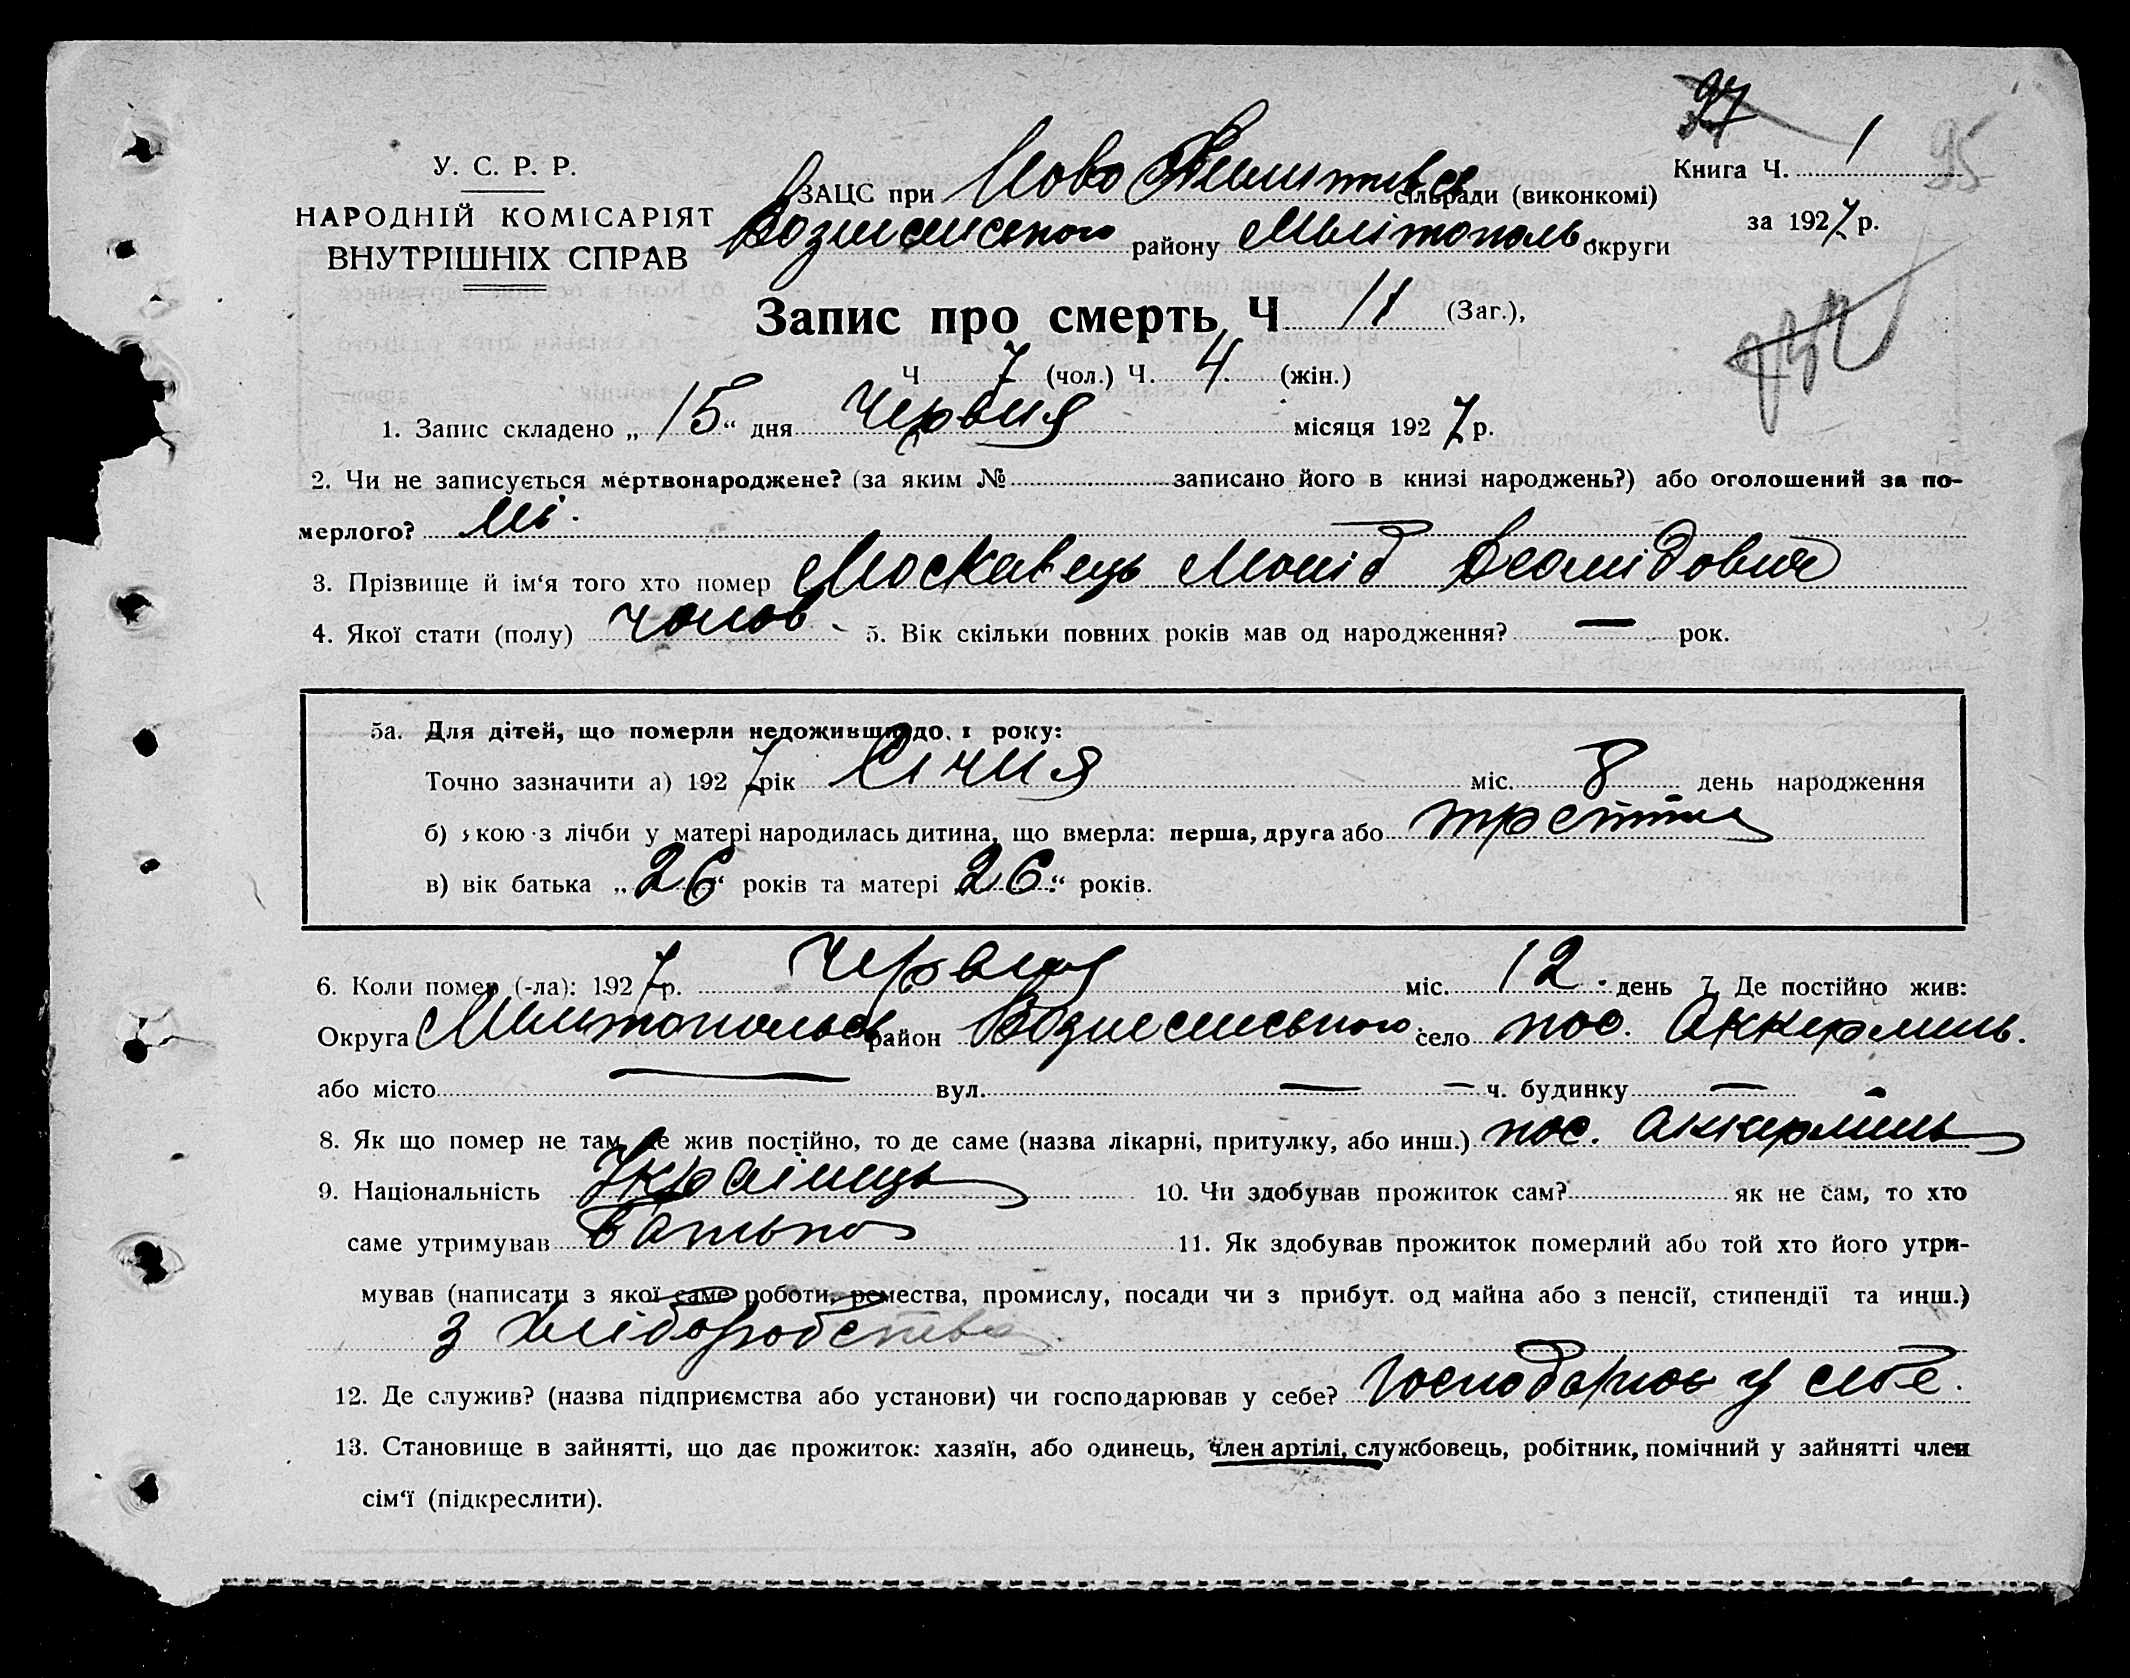 97
Книга Ч. 1
95
У. С. Р. Р.
НАРОДНІЙ КОМІСАРІЯТ
ВНУТРІШНІХ СПРАВ
ЗАЦС при Ново сільради (виконкомі)
Вознесенського району Мелітополь округи
за 1927 р.
Запис про смерть Ч 11 (Заг.),
Ч 7 (чол.) Ч. 4 (жін.)
1. Запис складено „15“ дня Червня місяця 1927 р.
2. Чи не записується мертвонароджене? (за яким № записано його в книзі народжень?) або оголошений за по-
мерлого? Ні.
3. Прізвище й ім‘я того хто помер Москавець Леонідович
4. Якої стати (полу) чолов. 5. Вік скільки повних років мав од народження? — рок.
5а. Для дітей, що померли недоживши до 1 року:
Точно зазначити а) 1927 рік Січня міс. 8 день народження
б) якою з лічби у матері народилась дитина, що вмерла: перша, друга або третття
в) вік батька „26“ років та матері „26“ років.
6. Коли помер (-ла): 1927 р. Червня міс. 12. день 7. Де постійно жив:
Округа Мелитопольсь район Вознесенського село пос. Аккермень.
або місто — вул. — — ч. будинку —
8. Як що помер не там, де жив постійно, то де саме (назва лікарні, притулку, або инш.) пос. Аккермень
9. Національність Українець 10. Чи здобував прожиток сам? як не сам, то хто
саме утримував батько 11. Як здобував прожиток померлий або той хто його утри-
мував (написати з якої саме роботи, ремества, промислу, посади чи з прибут. од майна або з пенсії, стипендії та инш.)
з хліборобства
12. Де служив? (назва підприємства або установи) чи господарював у себе? Господарює у себе.
13. Становище в зайнятті, що дає прожиток: хазяїн, або одинець, член артілі, службовець, робітник, помічний у зайнятті член
сім‘ї (підкреслити).